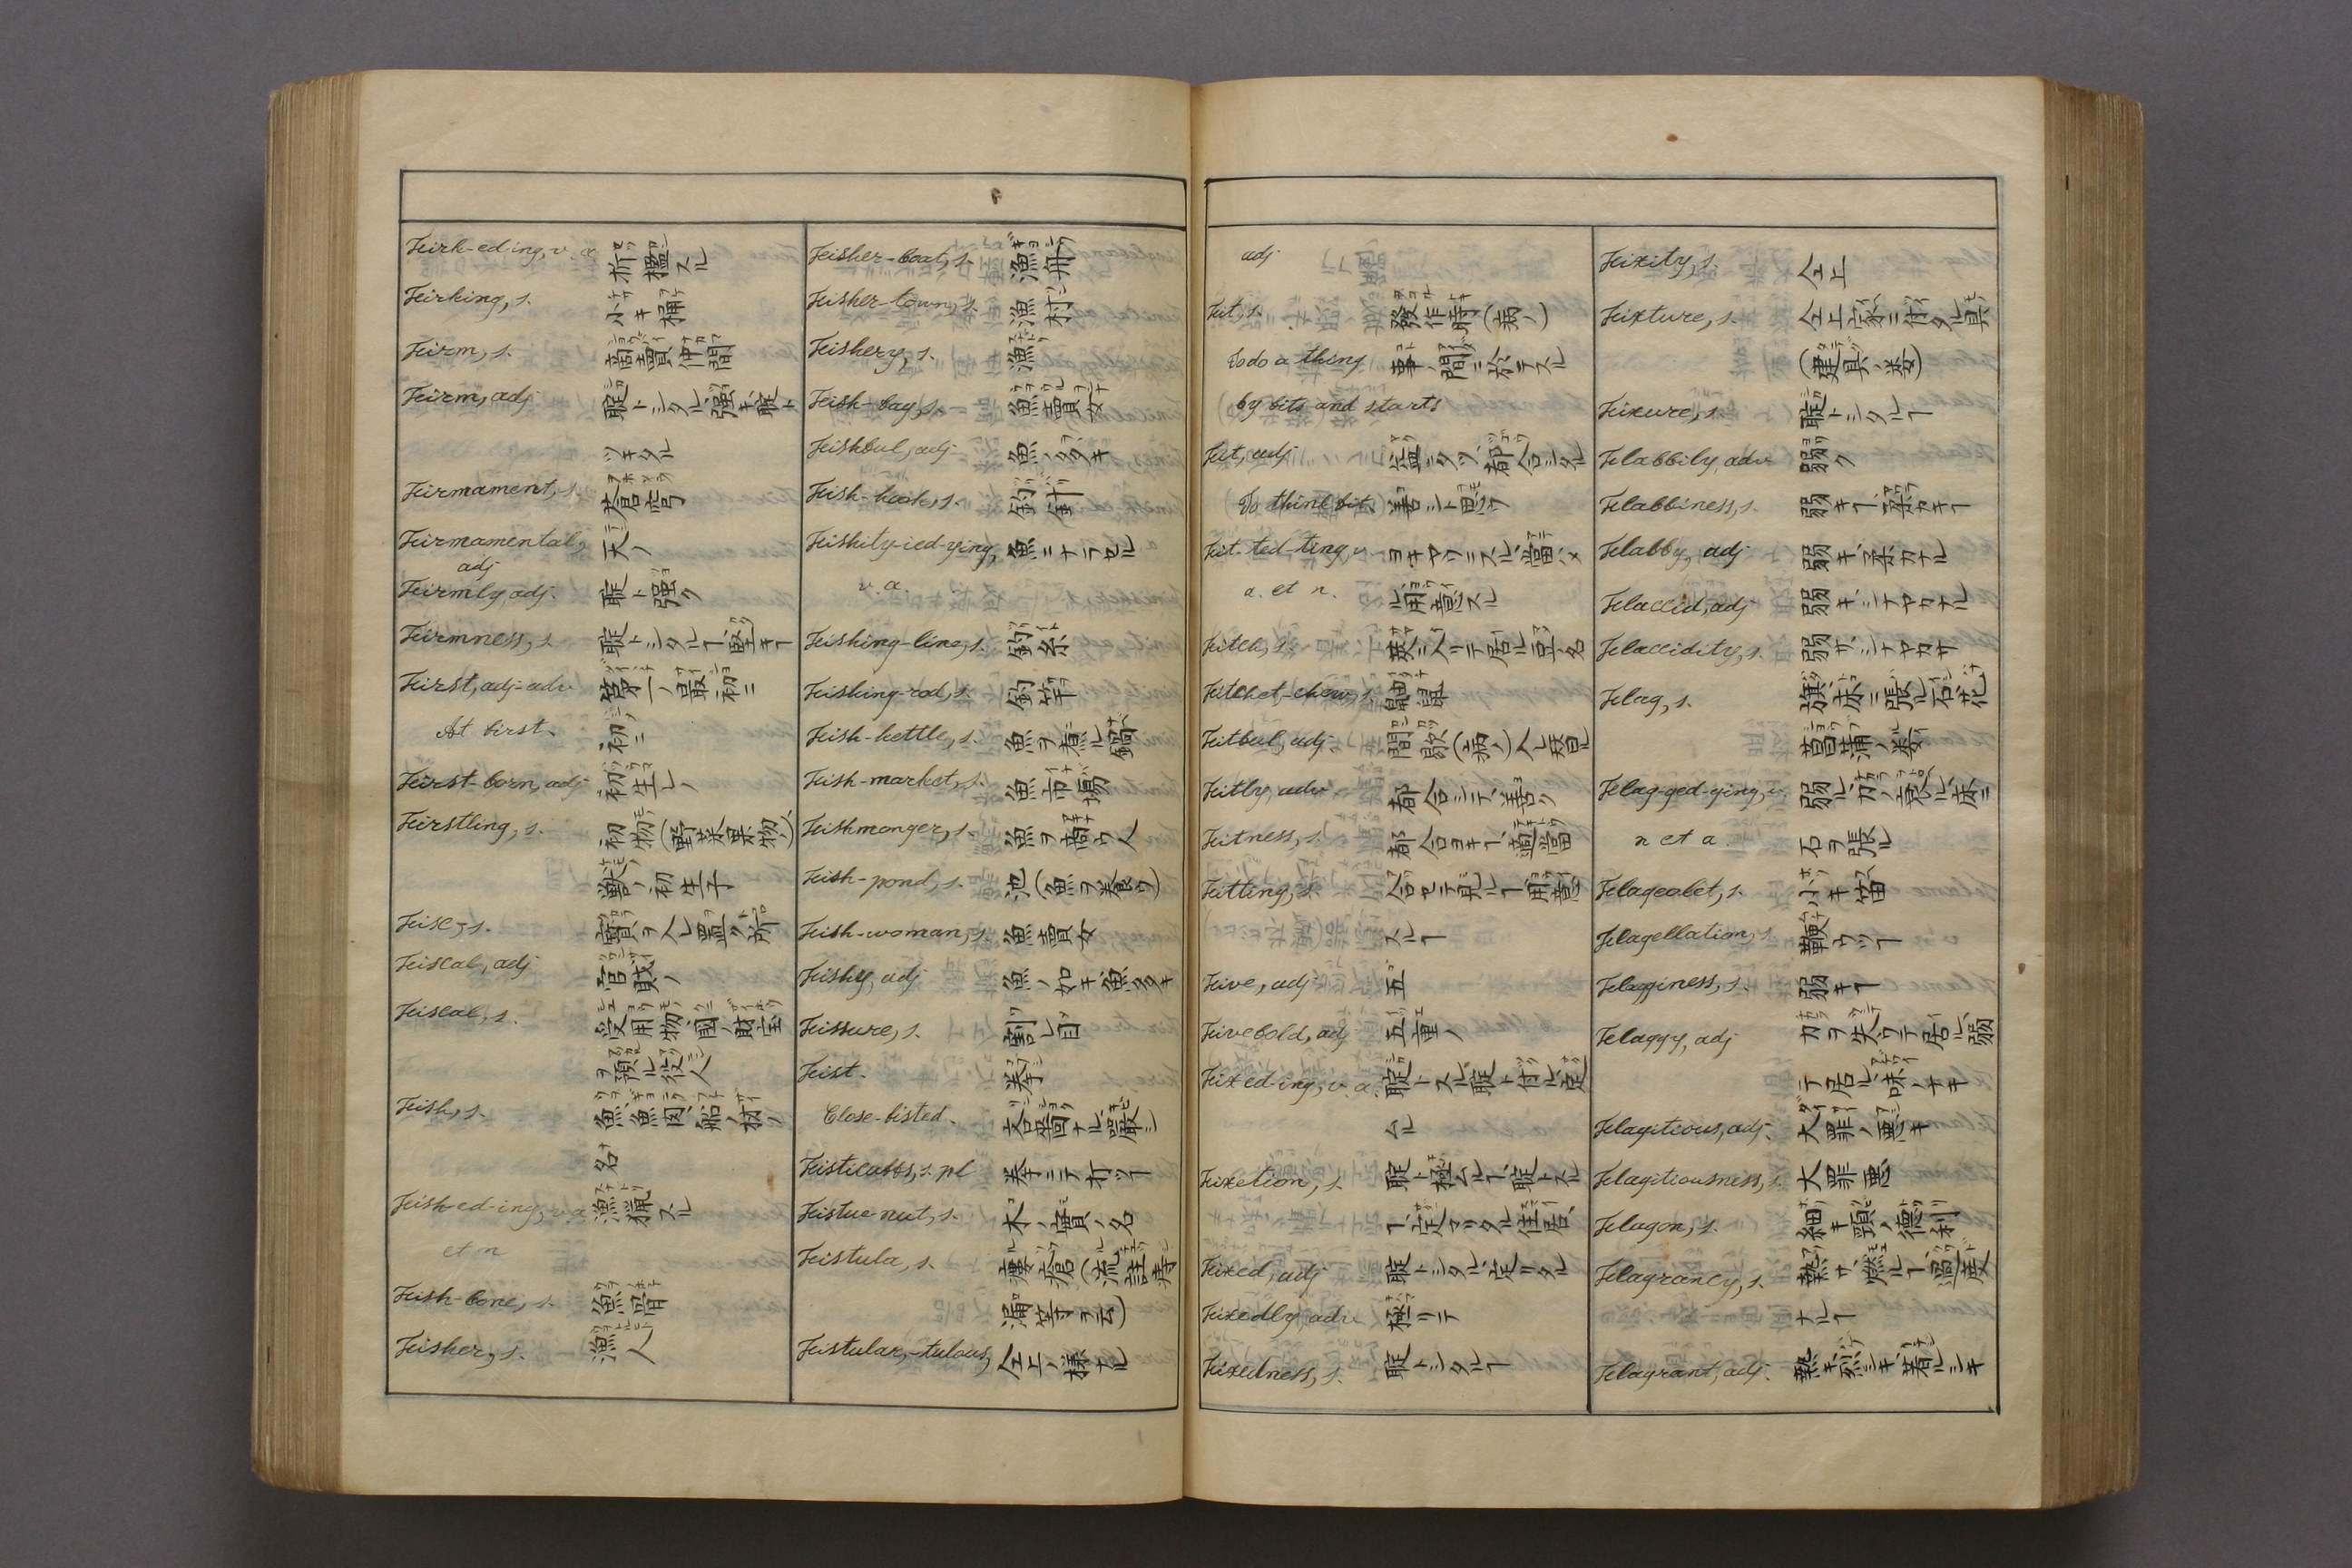 Firk-ed-ing, v. a. 折檻スル
Firking, s. 小サキ桶
Firm, s. 商賣仲間
Firm, adj 聢トシタル、強キ、聢ト
ツキタル
Firmament, s. 蒼穹
Firmamental, 天ノ
adj
Firmly, adj. 聢ト強ク
Firmness, s. 聢トシタルヿ、堅キヿ
First, adj-adv 第一ノ、最初ニ
At first. 初ニ
First-born, adj 初生レノ
Firstling, s. 初物(野菜果物ノ)
獣ノ初生子
Fisc, s. 寶ヲ入レ置ク所
Fiscal, adj 官財ノ
Fiscal, s. 受用物、國ノ財宝
ヲ預ル役人
Fish, s. 魚、魚図、船ノ材ノ
名
Fish-ed-ing, v. a 漁猟スル
et n
Fish-bone, s. 魚骨
Fisher, s. 漁人
Fisher-boat, s. 漁舟
Fisher-town, s. 漁村
Fishery, s. 漁
Fish-fag, s. 魚賣女
Fishful, adj 魚ノ多キ
Fish-hook, s. 釣針
Fishify-ied-ying, 魚ニナラセル
v. a.
Fishing-line, s. 釣糸
Fishing-rod, s. 釣竿
Fish-kettle, s. 魚ヲ煮ル鍋
Fish-market, s. 魚市場
Fishmonger, s. 魚ヲ商ウ人
Fish-pond, s. 池(魚ヲ養ウ)
Fish-woman, s. 魚賣女
Fishy, adj 魚ノ如キ、魚多キ
Fissure, s. 割レ目
Fist. 拳
Close-fisted. 吝嗇ナル、嚴シ
Fisticuffs, s. pl 拳ニテ打ツヿ
Fistue-nut, s. 木ノ實ノ名
Fistula, s. 瘻瘡(流註痔
漏等ヲ云)
Fistular, -tulous, 仝上ノ様ナル
adj
Fit, s. 發作時(病ノ)
To do a thing 事ノ間ニ於テスル
by fits and starts
Fit, adj 適ニクツ、都合シタル
To think fit 善シト思フ
Fit-ted-ting, v. ヨキヤウニスル、當ハメ
a. et n. ル、用意スル
Fitch, s. 莢ニ入リテ居ル豆ノ名
Fitchet-chew, s. 鼬鼠
Fitful, adj. 間歇(病ノ)入レ替ル
Fitly, adv 都合シテ、善ク
Fitness, s. 都合ヨキヿ、適當
Fitting, s. 合セテ見ルヿ、用意
スルヿ
Five, adj 五
Fivefold, adj 五重ノ
Fix-ed-ing, v. a. 聢トスル、聢ト付ル、定
ムル
Fixetion, s. 聢ト極ムルヿ、聢トスル
ヿ、定マリタル住居
Fixed, adj 聢トシタル、定リタル
Fixedly, adv 極リテ
Fixedness, s. 聢トシタルヿ
Fixity, s. 仝上
Fixture, s. 仝上、家ニ付タル具
(建具ノ類)
Fixure, s. 聢トシタルヿ
Flabbily, adv 弱ク
Flabbiness, s. 弱キヿ、柔カキヿ
Flabby, adj 弱キ、柔カナル
Flaccid, adj 弱キ、シナヤカナル
Flaccidity, s. 弱サ、シナヤカサ
Flag, s. 旗、床ニ張ル石、花
菖蒲ノ類
Flag-ged-ging, v. 弱ル、力ノ衰ル、床ニ
n et a. 石ヲ張ル
Flageolet, s. 小キ笛
Flagellation, s. 鞭ウツヿ
Flagginess, s. 弱キヿ
Flaggy, adj 力ヲ失ウテ居ル、弱
テ居ル、味ノナキ
Flagitious, adj. 大罪ノ、悪キ
Flagitiousness, s. 大罪悪
Flagon, s. 細キ頸ノ徳利
Flagrancy, s. 熱サ、燃ルヿ、過度
ナルヿ
Flagrant, adj. 熱キ、烈シキ、著ルシキ